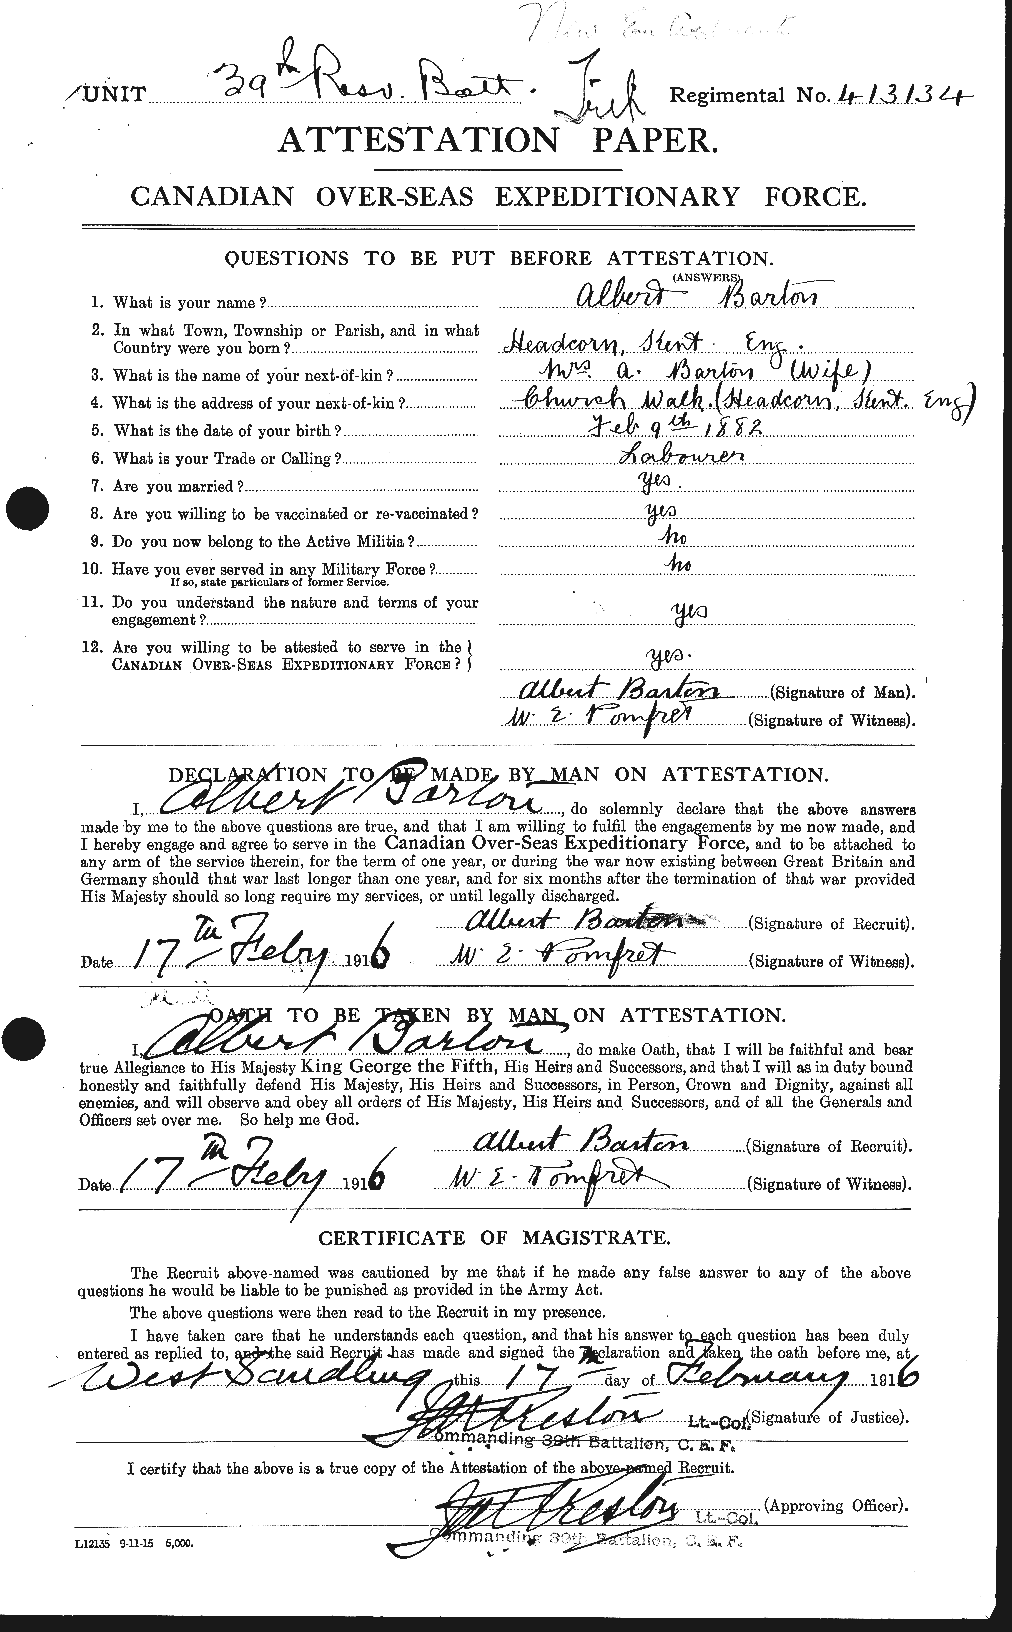 UNIT 39th Resv. Batt. Regimental No. 413134
ATTESTATION PAPER.
CANADIAN OVER-SEAS EXPEDITIONARY FORCE.
QUESTIONS TO BE PUT BEFORE ATTESTATION.
(ANSWERS)
1. What is your name? Albert Barton
2. In what Town, Township or Parish, and in what
Country were you born? Headcorn, Kent. Eng.
3. What is the name of your next-of-kin? Mrs. A. Barton (Wife)
4. What is the address of your next-of-kin? Church Walk. (Headcorn, Kent. Eng)
5. What is the date of your birth? Feb 9th 1882
6. What is your Trade or Calling? Labourer
7. Are you married? yes.
8. Are you willing to be vaccinated or re-vaccinated? yes
9. Do you now belong to the Active Militia? no
10. Have you ever served in any Military Force? no
If so, state particulars of former Service.
11. Do you understand the nature and terms of your
engagement? yes
12. Are you willing to be attested to serve in the
CANADIAN OVER-SEAS EXPEDITIONARY FORCE? yes.
Albert Barton (Signature of Man).
W. E. Pomfret (Signature of Witness).
DECLARATION TO BE MADE BY MAN ON ATTESTATION.
I, Albert Barton, do solemnly declare that the above answers
made by me to the above questions are true, and that I am willing to fulfil the engagements by me now made, and
I hereby engage and agree to serve in the Canadian Over-Seas Expeditionary Force, and to be attached to
any arm of the service therein, for the term of one year, or during the war now existing between Great Britain and
Germany should that war last longer than one year, and for six months after the termination of that war provided
His Majesty should so long require my services, or until legally discharged.
Albert Barton (Signature of Recruit).
Date 17th Feby 1916 W. E. Pomfret (Signature of Witness).
OATH TO BE TAKEN BY MAN ON ATTESTATION.
I, Albert Barton, do make Oath, that I will be faithful and bear
true Allegiance to His Majesty King George the Fifth, His Heirs and Successors, and that I will as in duty bound
honestly and faithfully defend His Majesty, His Heirs and Successors, in Person, Crown and Dignity, against all
enemies, and will observe and obey all orders of His Majesty, His Heirs and Successors, and of all the Generals and
Officers set over me. So help me God.
Albert Barton (Signature of Recruit).
Date 17th Feby 1916 W. E. Pomfret (Signature of Witness).
CERTIFICATE OF MAGISTRATE.
The Recruit above-named was cautioned by me that if he made any false answer to any of the above
questions he would be liable to be punished as provided in the Army Act.
The above questions were then read to the Recruit in my presence.
I have taken care that he understands each question, and that his answer to each question has been duly
entered as replied to, and the said Recruit has made and signed the declaration and taken the oath before me, at
West Sandling this 17th day of February 1916
Preston Lt-Col. (Signature of Justice).
Commanding 39th Battalion, C. E. F.
I certify that the above is a true copy of the Attestation of the above-named Recruit.
Preston Lt-Col. (Approving Officer).
Commanding 39th Battalion, C. E. F.
L12135 9-11-15 5,000.